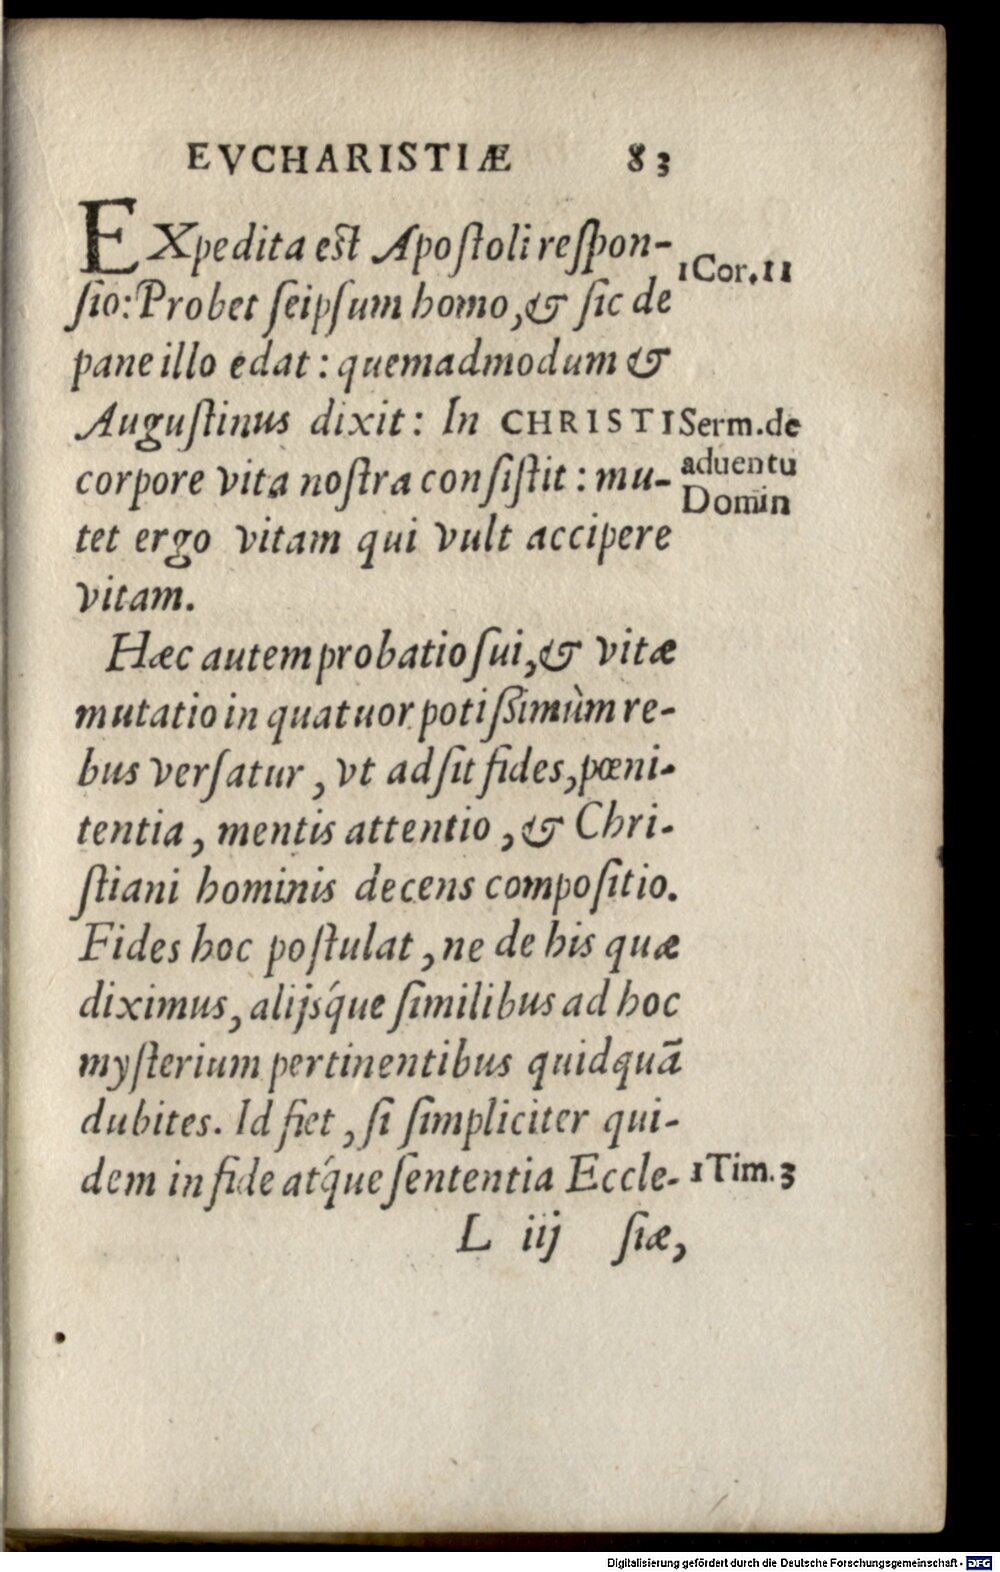 EVCHARISTIÆ 83
EXpedita est Apoſtoli reſpon-
1 Cor. 11
ſio: Probet ſeipſum homo, & ſic de
pane illo edat: quemadmodum &
Auguſtinus dixit: In CHRISTI
Serm. de
aduentu
Domin
corpore vita noſtra conſiſtit: mu-
tet ergo vitam qui vult accipere
vitam.
Hæc autem probatio ſui, & vitæ
mutatio in quatuor potiſſimùm re-
bus verſatur, vt adſit fides, pœni-
tentia, mentis attentio, & Chri-
ſtiani hominis decens compoſitio.
Fides hoc poſtulat, ne de his quæ
diximus, alijsq́ue ſimilibus ad hoc
myſterium pertinentibus quidquã
dubites. Id fiet, ſi ſimpliciter qui-
dem in fide atq́ue ſententia Eccle-
1 Tim. 3
L iij ſiæ,
Digitalisierung gefördert durch die Deutsche Forschungsgemeinschaft - DFG